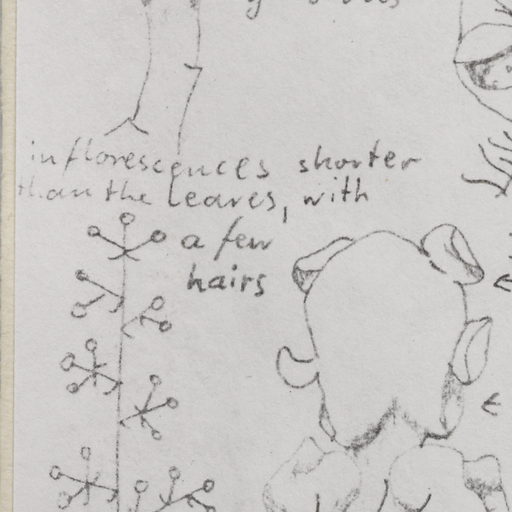 inflorescences shorter
than the leaves, with
a few
hairs